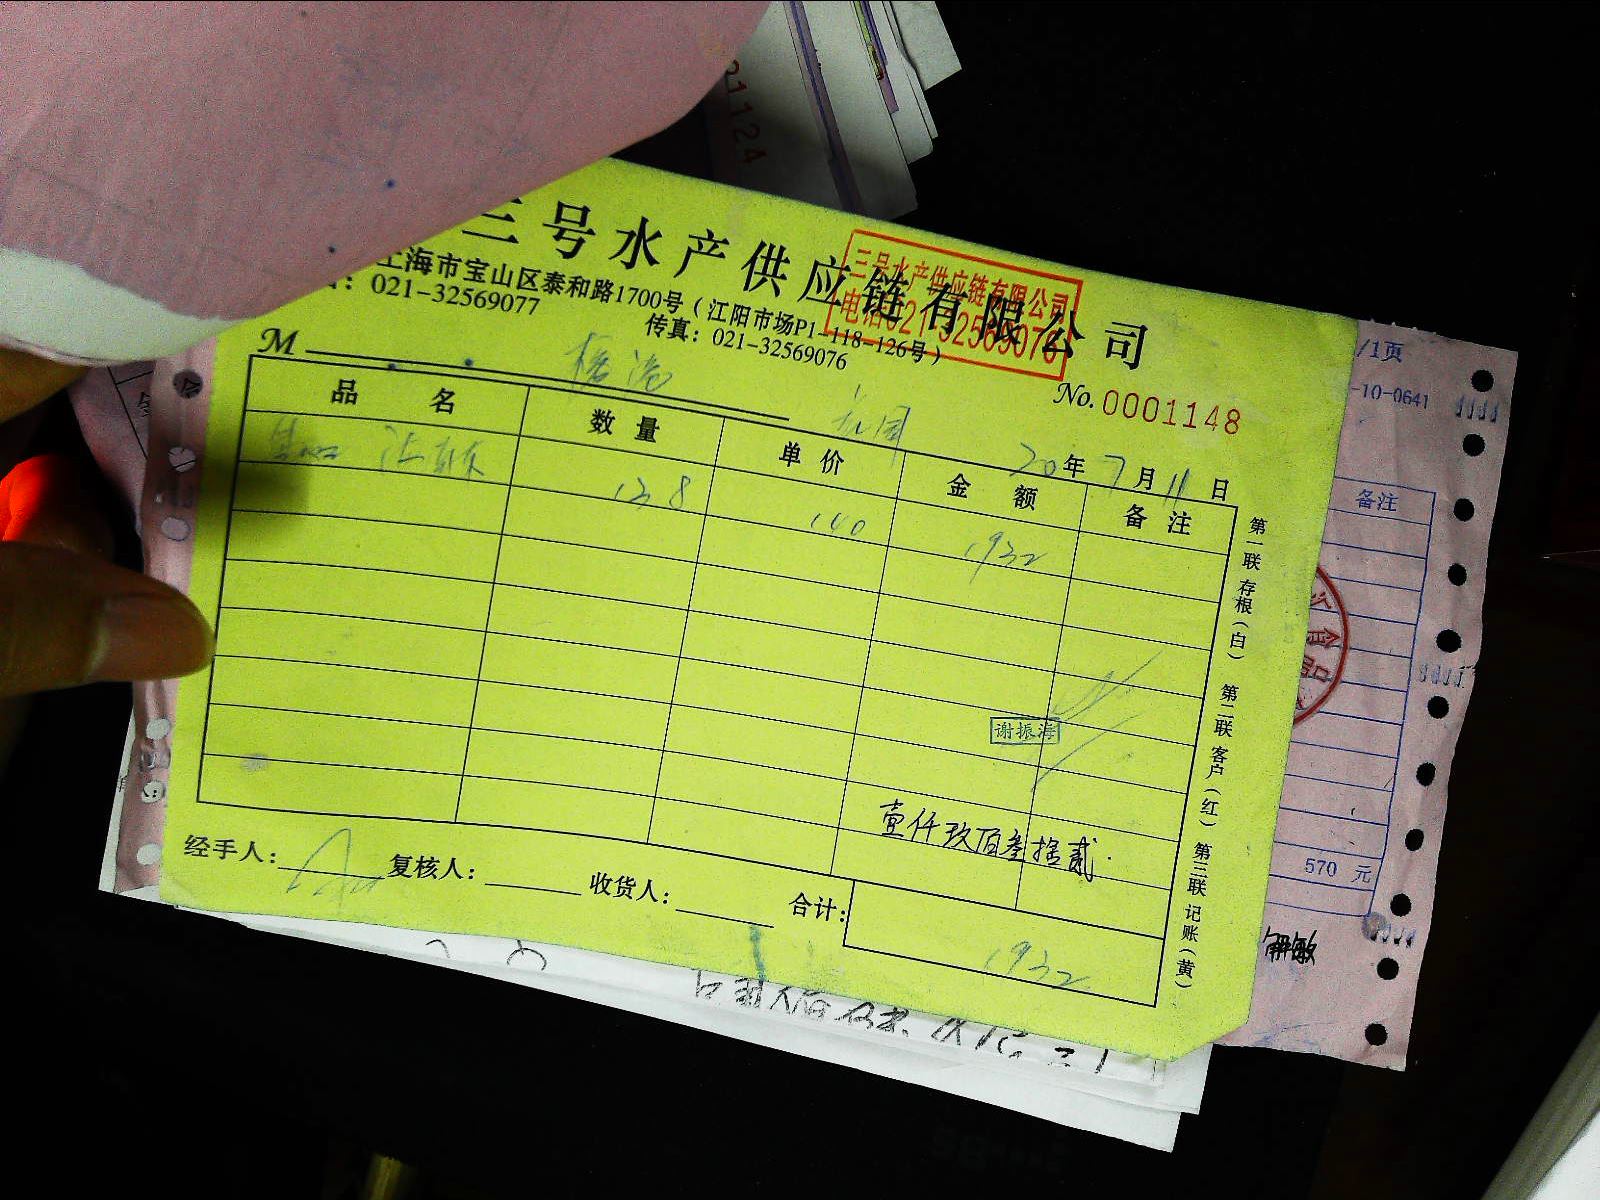 21124
三号水产供应链有限公司
三号水产供应链有限公司
电话021-32569076
上海市宝山区泰和路1700号（江阳市场P1-118-126号）
：021-32569077 传真：021-32569076
M
No.0001148
20年7月11日
品名 数量 单价 金额 备注
13.8 140 1932
谢振海
壹仟玖佰叁拾贰
经手人： 复核人： 收货人： 合计：
1932
第一联存根（白） 第二联客户（红） 第三联记账（黄）
/1页
-10-0641
备注
570 元